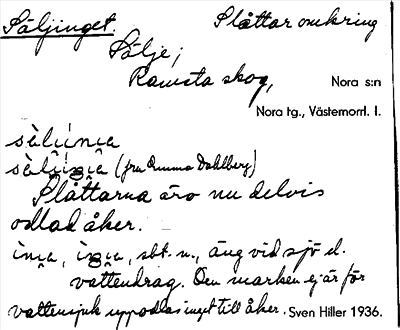 Säljinget. Slåttar omkring
Sälje;
Ramsta skog, Nora s:n
Nora tg., Västernorrl. l.
sèlíŋ̀ịa
(fru Emma Dahlberg)
Slåttarna äro nu delvis
odlad åker.
sbt. n., äng vid sjö el.
vattendrag. Den marken ej är för
vattensjuk uppodlas inget till åker. Sven Hiller 1936.